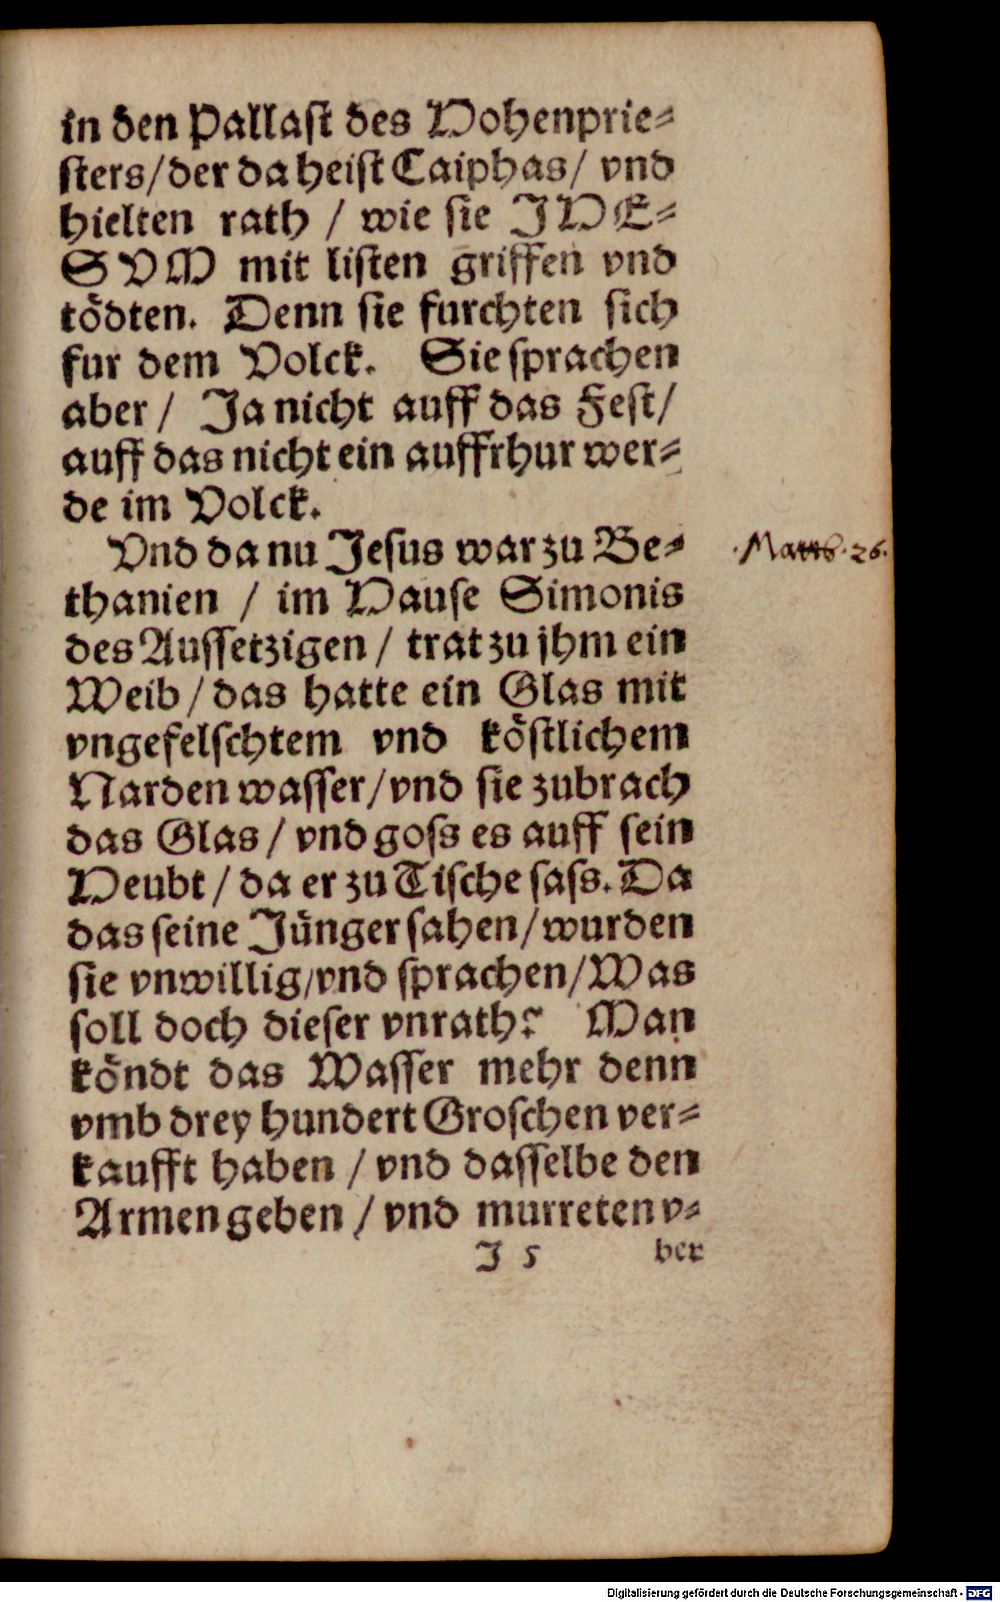 in den Pallaſt des Hohenprie⸗
ſters/der da heiſt Caiphas/ vnd
hielten rath / wie ſie JHE⸗
SVM mit liſten griffen vnd
toͤdten. Denn ſie furchten ſich
fur dem Volck. Sie ſprachen
aber / Ja nicht auff das Feſt/
auff das nicht ein auffrhur wer⸗
de im Volck.
Vnd da nu Jeſus war zu Be⸗
.Matth. 26.
thanien / im Hauſe Simonis
des Auſſetzigen / trat zu jhm ein
Weib / das hatte ein Glas mit
vngefelſchtem vnd koͤſtlichem
Narden waſſer/vnd ſie zubrach
das Glas / vnd goſs es auff ſein
Heubt / da er zu Tiſche ſaſs. Da
das ſeine Juͤnger ſahen/wurden
ſie vnwillig/vnd ſprachen/Was
ſoll doch dieſer vnrath? Man
koͤndt das Waſſer mehr denn
vmb drey hundert Groſchen ver⸗
kaufft haben / vnd daſſelbe den
Armen geben / vnd murreten v⸗
J 5 ber
Digitalisierung gefördert durch die Deutsche Forschungsgemeinschaft - DFG